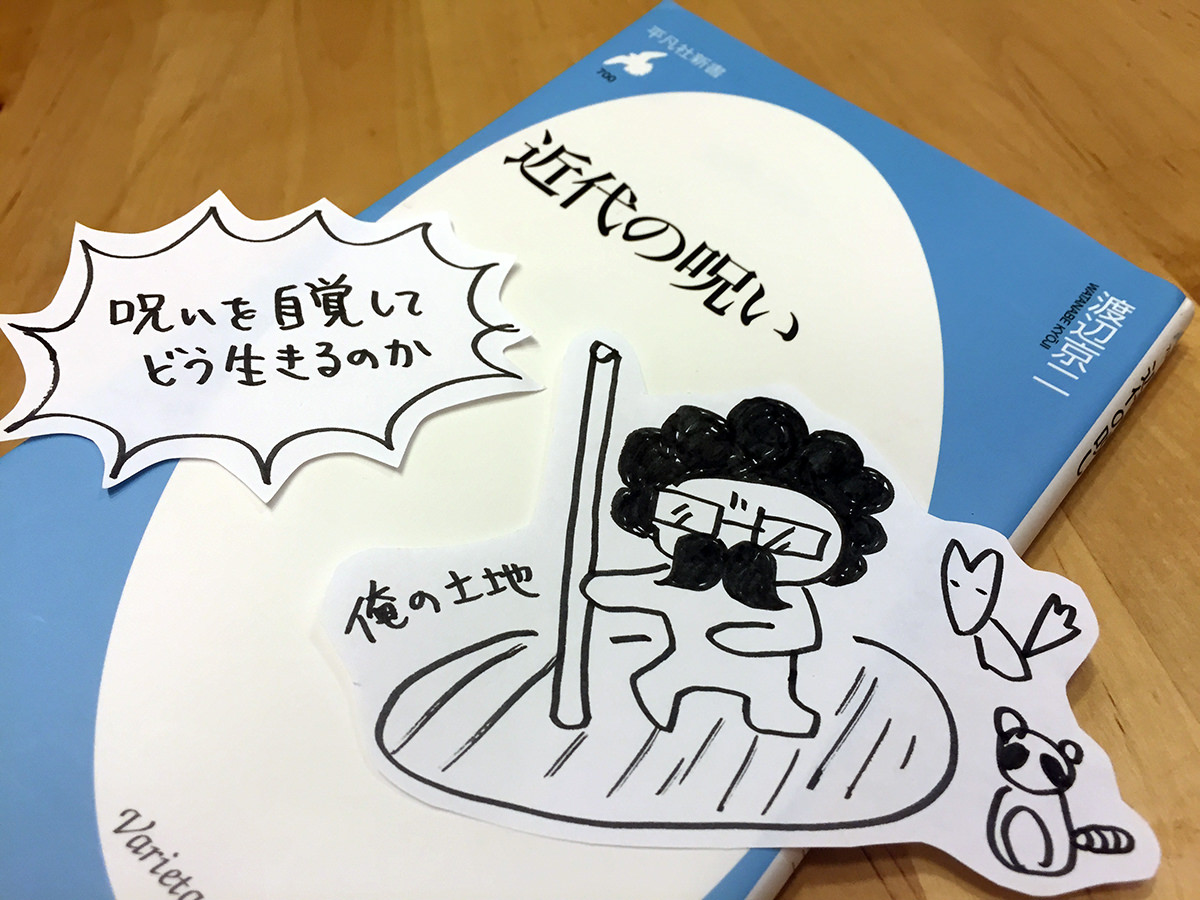 平凡社新書
700
近代の呪い
渡辺京二
WATANABE KYŌJI
呪いを自覚して
どう生きるのか
俺の土地